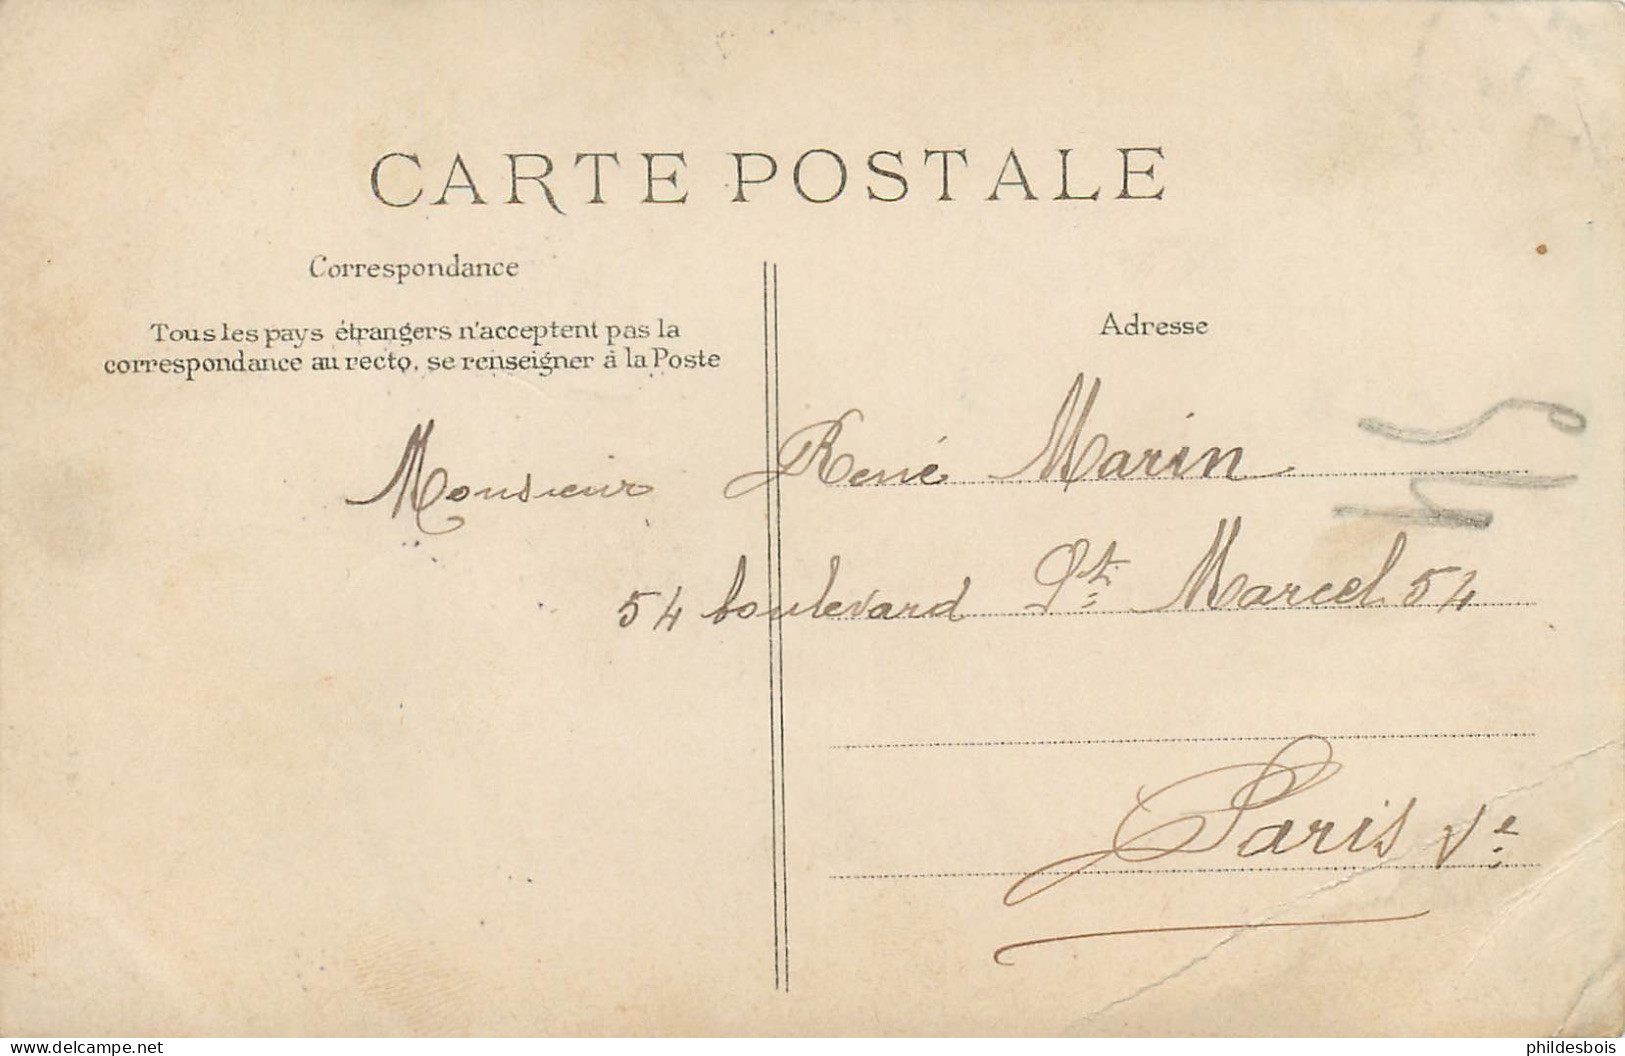 CARTE POSTALE
Correspondance
Tous les pays étrangers n'acceptent pas la
correspondance au recto, se renseigner à la Poste
Adresse
Monsieur René Marin
54 boulevard St Marcel 54
Paris Ve
delcampe.net
phildesbois